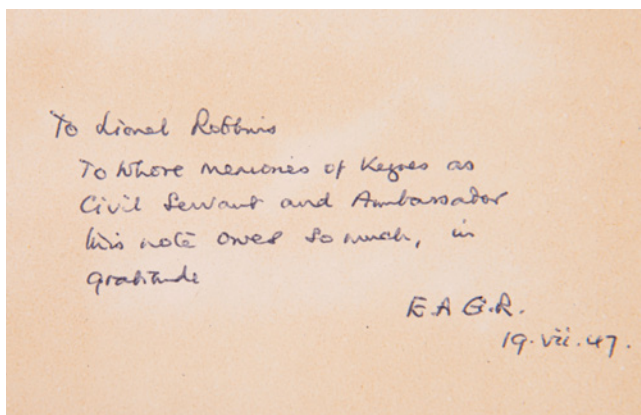 To Lionel Robbins
To whose memories of Keynes as
Civil Servant and Ambassador
this note owes so much, in
gratitude
E.A.G.R.
19.vii.47.